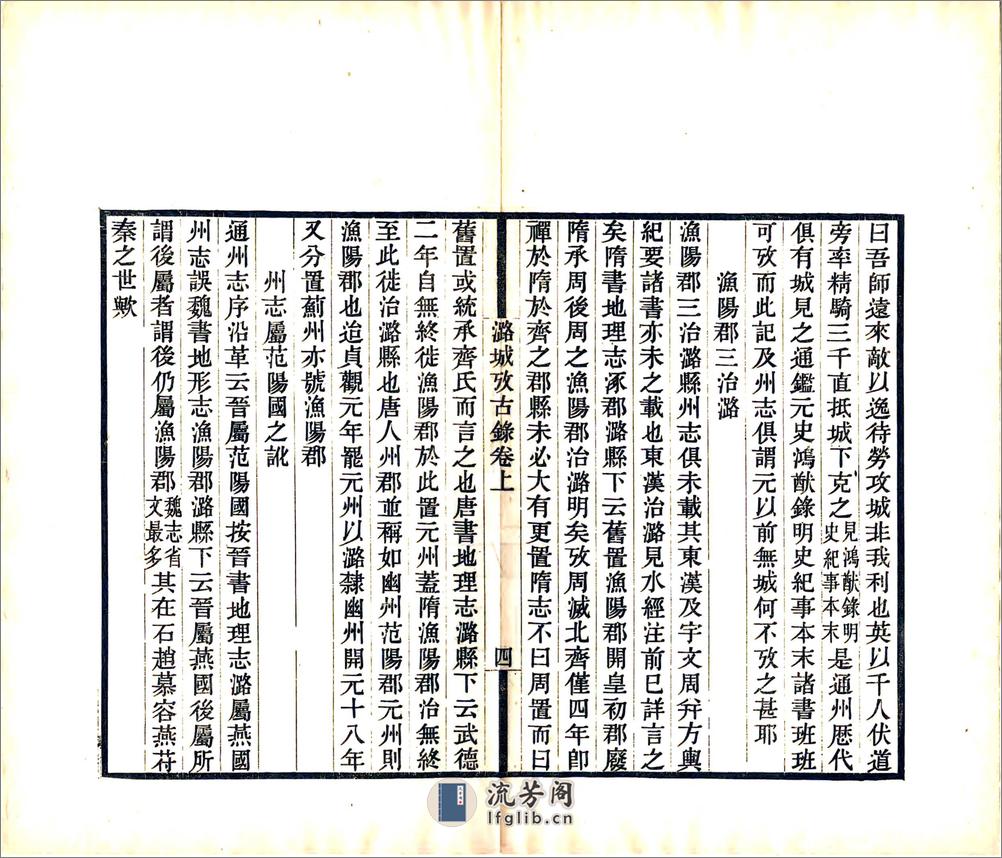 曰吾師遠來敵以逸待勞攻城非我利也英以千人伏道
旁率精騎三千直抵城下克之見鴻猷錄明史紀事本末是通州歷代
俱有城見之通鑑元史鴻猷錄明史紀事本末諸書班班
可攷而此記及州志俱謂元以前無城何不攷之甚耶
漁陽郡三治潞
漁陽郡三治潞縣州志俱未載其東漢及宇文周幷方輿
紀要諸書亦未之載也東漢治潞見水經注前已詳言之
矣隋書地理志涿郡潞縣下云舊置漁陽郡開皇初郡廢
隋承周後周之漁陽郡治潞明矣攷周滅北齊僅四年卽
禪於隋於齊之郡縣未必大有更置隋志不曰周置而曰
潞城攷古錄卷上
四
舊置或統承齊氏而言之也唐書地理志潞縣下云武德
二年自無終徙漁陽郡於此置元州蓋隋漁陽郡治無終
至此徙治潞縣也唐人州郡並稱如幽州范陽郡元州則
漁陽郡也迨貞觀元年罷元州以潞隸幽州開元十八年
又分置薊州亦號漁陽郡
州志屬范陽國之訛
通州志序沿革云晉屬范陽國按晉書地理志潞屬燕國
州志誤魏書地形志漁陽郡潞縣下云晉屬燕國後屬所
謂後屬者謂後仍屬漁陽郡魏志省文最多其在石趙慕容燕苻
秦之世歟
流芳阁
lfglib.com